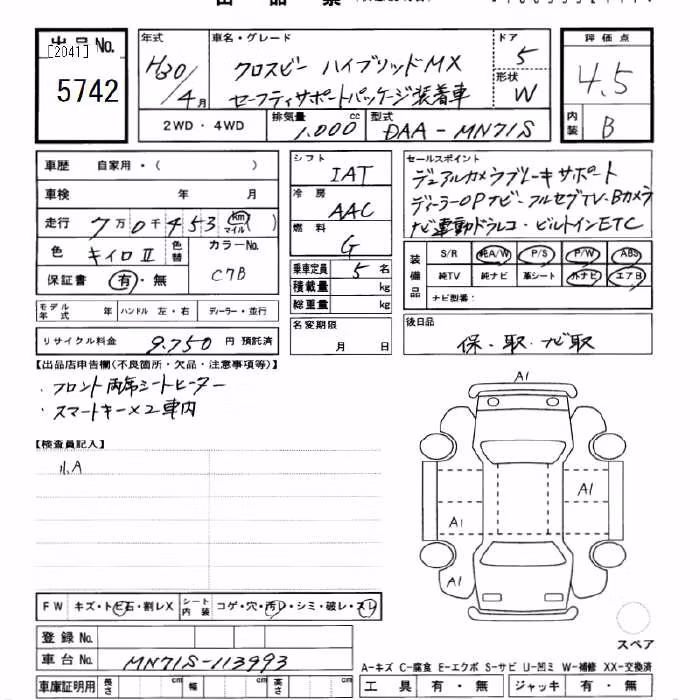 出品No.
[2041]
5742
年式
H30/4月
車名・グレード
クロスビー ハイブリッドMX
セーフティサポートパッケージ装着車
ドア
5
形状
W
評価点
4.5
内装
B
2WD・4WD
排気量
1.000 cc
型式
DAA-MN71S
車歴 自家用・( )
車検 年 月
走行 7万0千453 km マイル ( )
色 キイロⅡ
色替
カラーNo.
C7B
保証書 有・無
モデル年式
ハンドル 左・右
ディーラー・並行
リサイクル料金 9.750 円 預託済
シフト
IAT
冷房
AAC
燃料
G
乗車定員 5 名
積載量 kg
総重量 kg
名変期限
月 日
セールスポイント
デュアルカメラブレーキサポート
ディーラーOPナビ-フルセグTV-Bカメラ
ナビ連動ドラレコ・ビルトインETC
装備品
S/R 純A/W P/S P/W ABS
純TV 純ナビ 革シート 外ナビ エアB
ナビ型番:
後日品
保・取・ナビ取
【出品店申告欄(不良箇所・欠品・注意事項等)】
・フロント両席シートヒーター
・スマートキー×2車内
【検査員記入】
小A
A1
A1
A1
A1
スペア
FW キズ・トビ石・割レX
シート内装 コゲ・穴・汚レ・シミ・破レ・スレ
登録No.
車台No. MN71S-113993
車庫証明用 長さ cm 幅 cm 高さ cm
A-キズ C-腐食 E-エクボ S-サビ U-凹ミ W-補修 XX-交換済
工具 有・無 ジャッキ 有・無